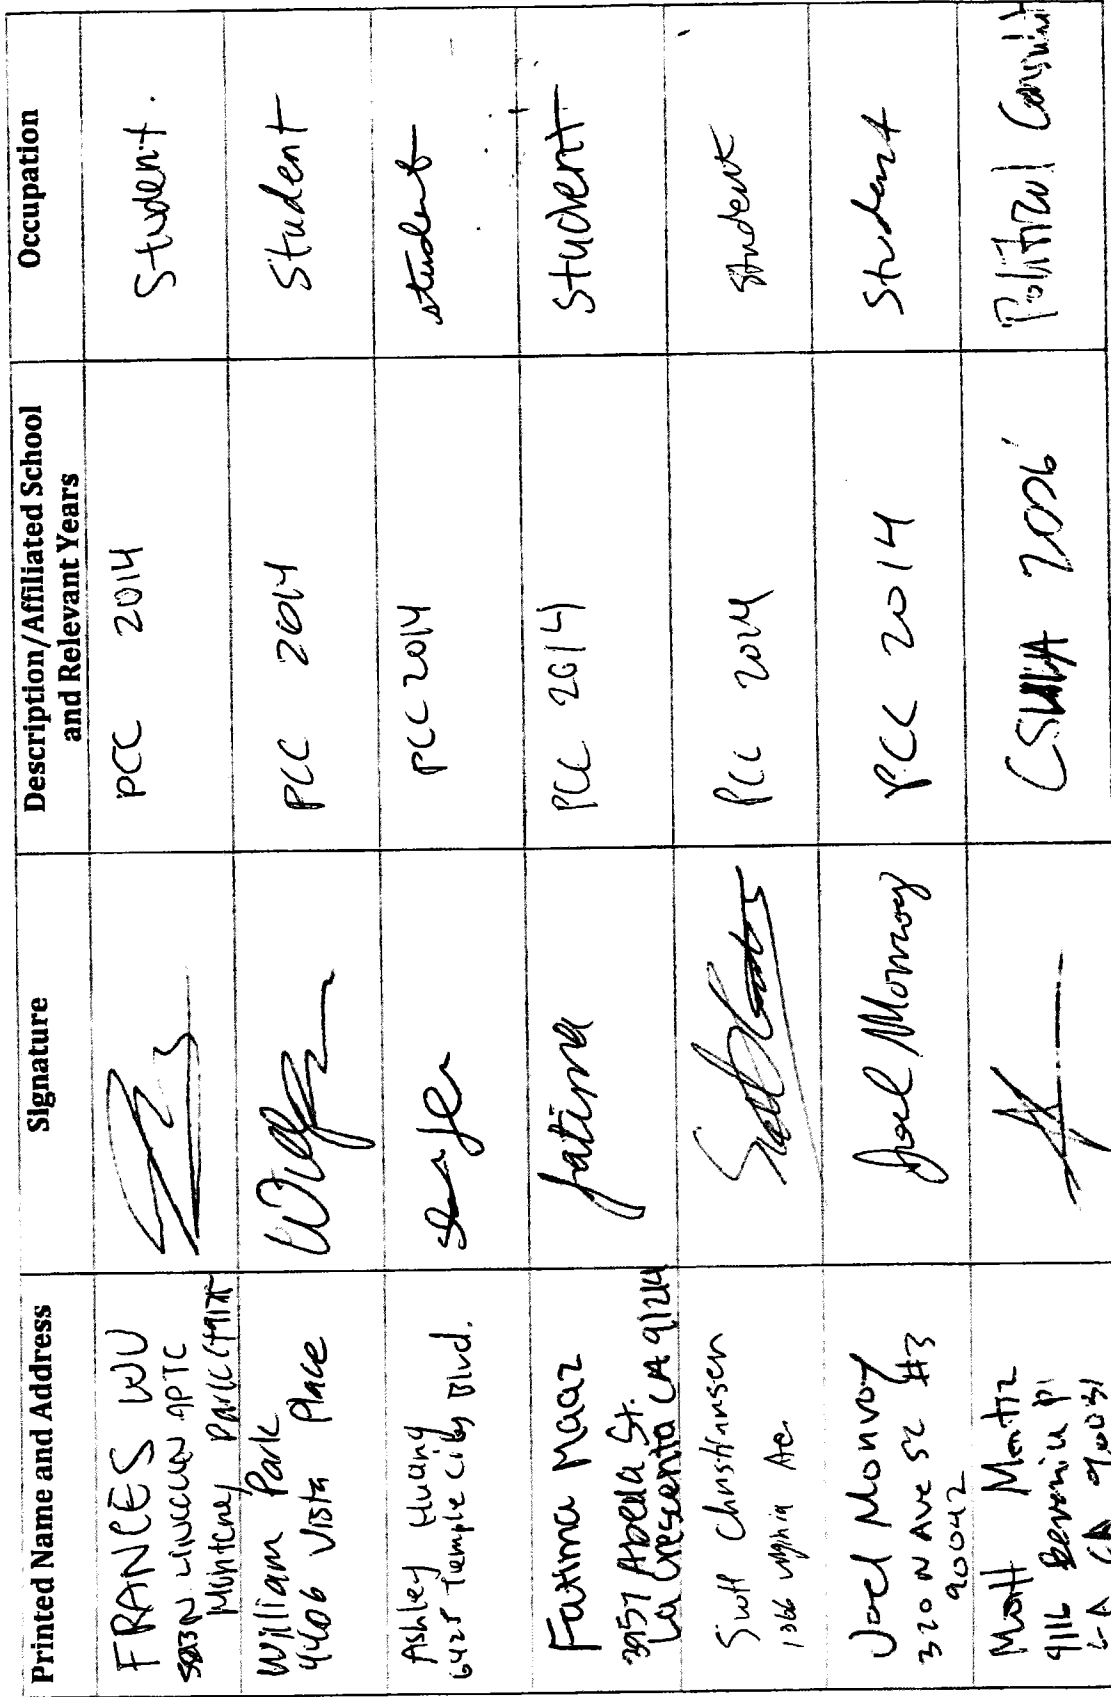 Printed Name and Address
Signature
Description/Affiliated School
and Relevant Years
Occupation
FRANCES WU
APTC
Park
PCC 2014
Student.
William Park
4406 Vista Place
PCC 2014
Student
Ashley Huang
6425 Temple City Blvd.
PCC 2014
student
Fatima Maaz
3957 Abella St.
La Crescenta CA 91214
Fatima
PCC 2014
Student
Scott Christiansen
Virginia Ave
PCC 2014
Student
Joel Monroy
320 N Ave 52 #3
90042
Joel Monroy
PCC 2014
Student
Matt
LA CA 90031
2006
Political